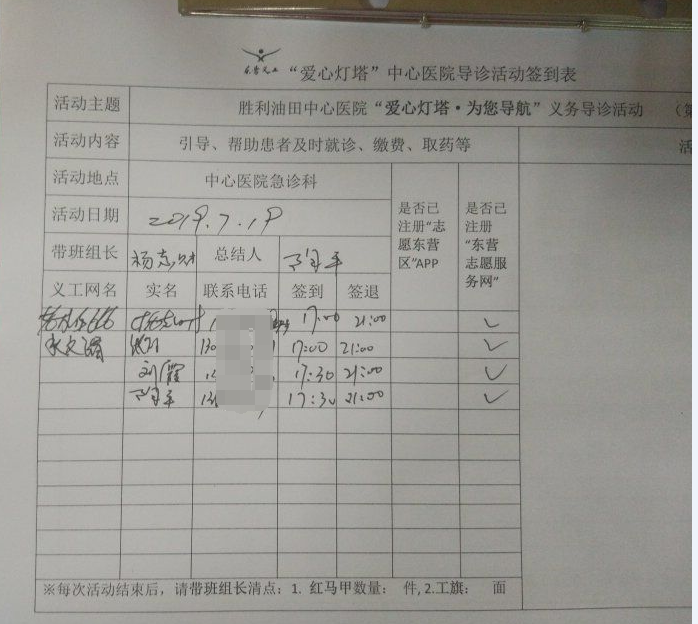 东营义工 “爱心灯塔”中心医院导诊活动签到表
活动主题 胜利油田中心医院“爱心灯塔·为您导航”义务导诊活动 （第
活动内容 引导、帮助患者及时就诊、缴费、取药等 活
活动地点 中心医院急诊科 是否已注册“志愿东营区”APP 是否已注册“东营志愿服务网”
活动日期 2019.7.19
带班组长 总结人
义工网名 实名 联系电话 签到 签退
17:00 21:00 ✓
130 1 17:00 21:00 ✓
刘霞 17:30 21:00 ✓
17:30 21:00 ✓
※每次活动结束后，请带班组长清点：1. 红马甲数量： 件, 2.工旗： 面